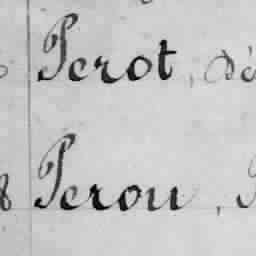 Perot, Dé
Perou,